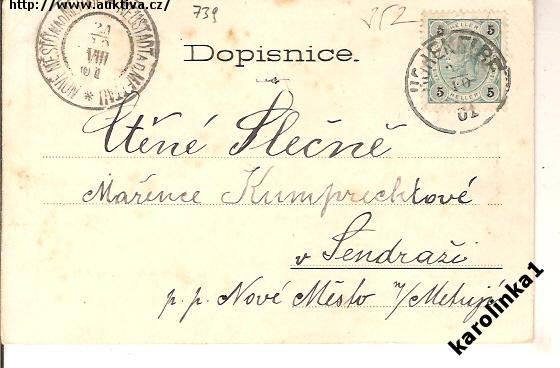 http://www.auktiva.cz/
739
352
Dopisnice.
NOVÉ MĚSTO
5 HELLER 5
HOHENELBE
01
Ctěné Slečně
Mařence Kumprechtové
v Sendraži
p. p. Nové Město n/Metují
karolinka1